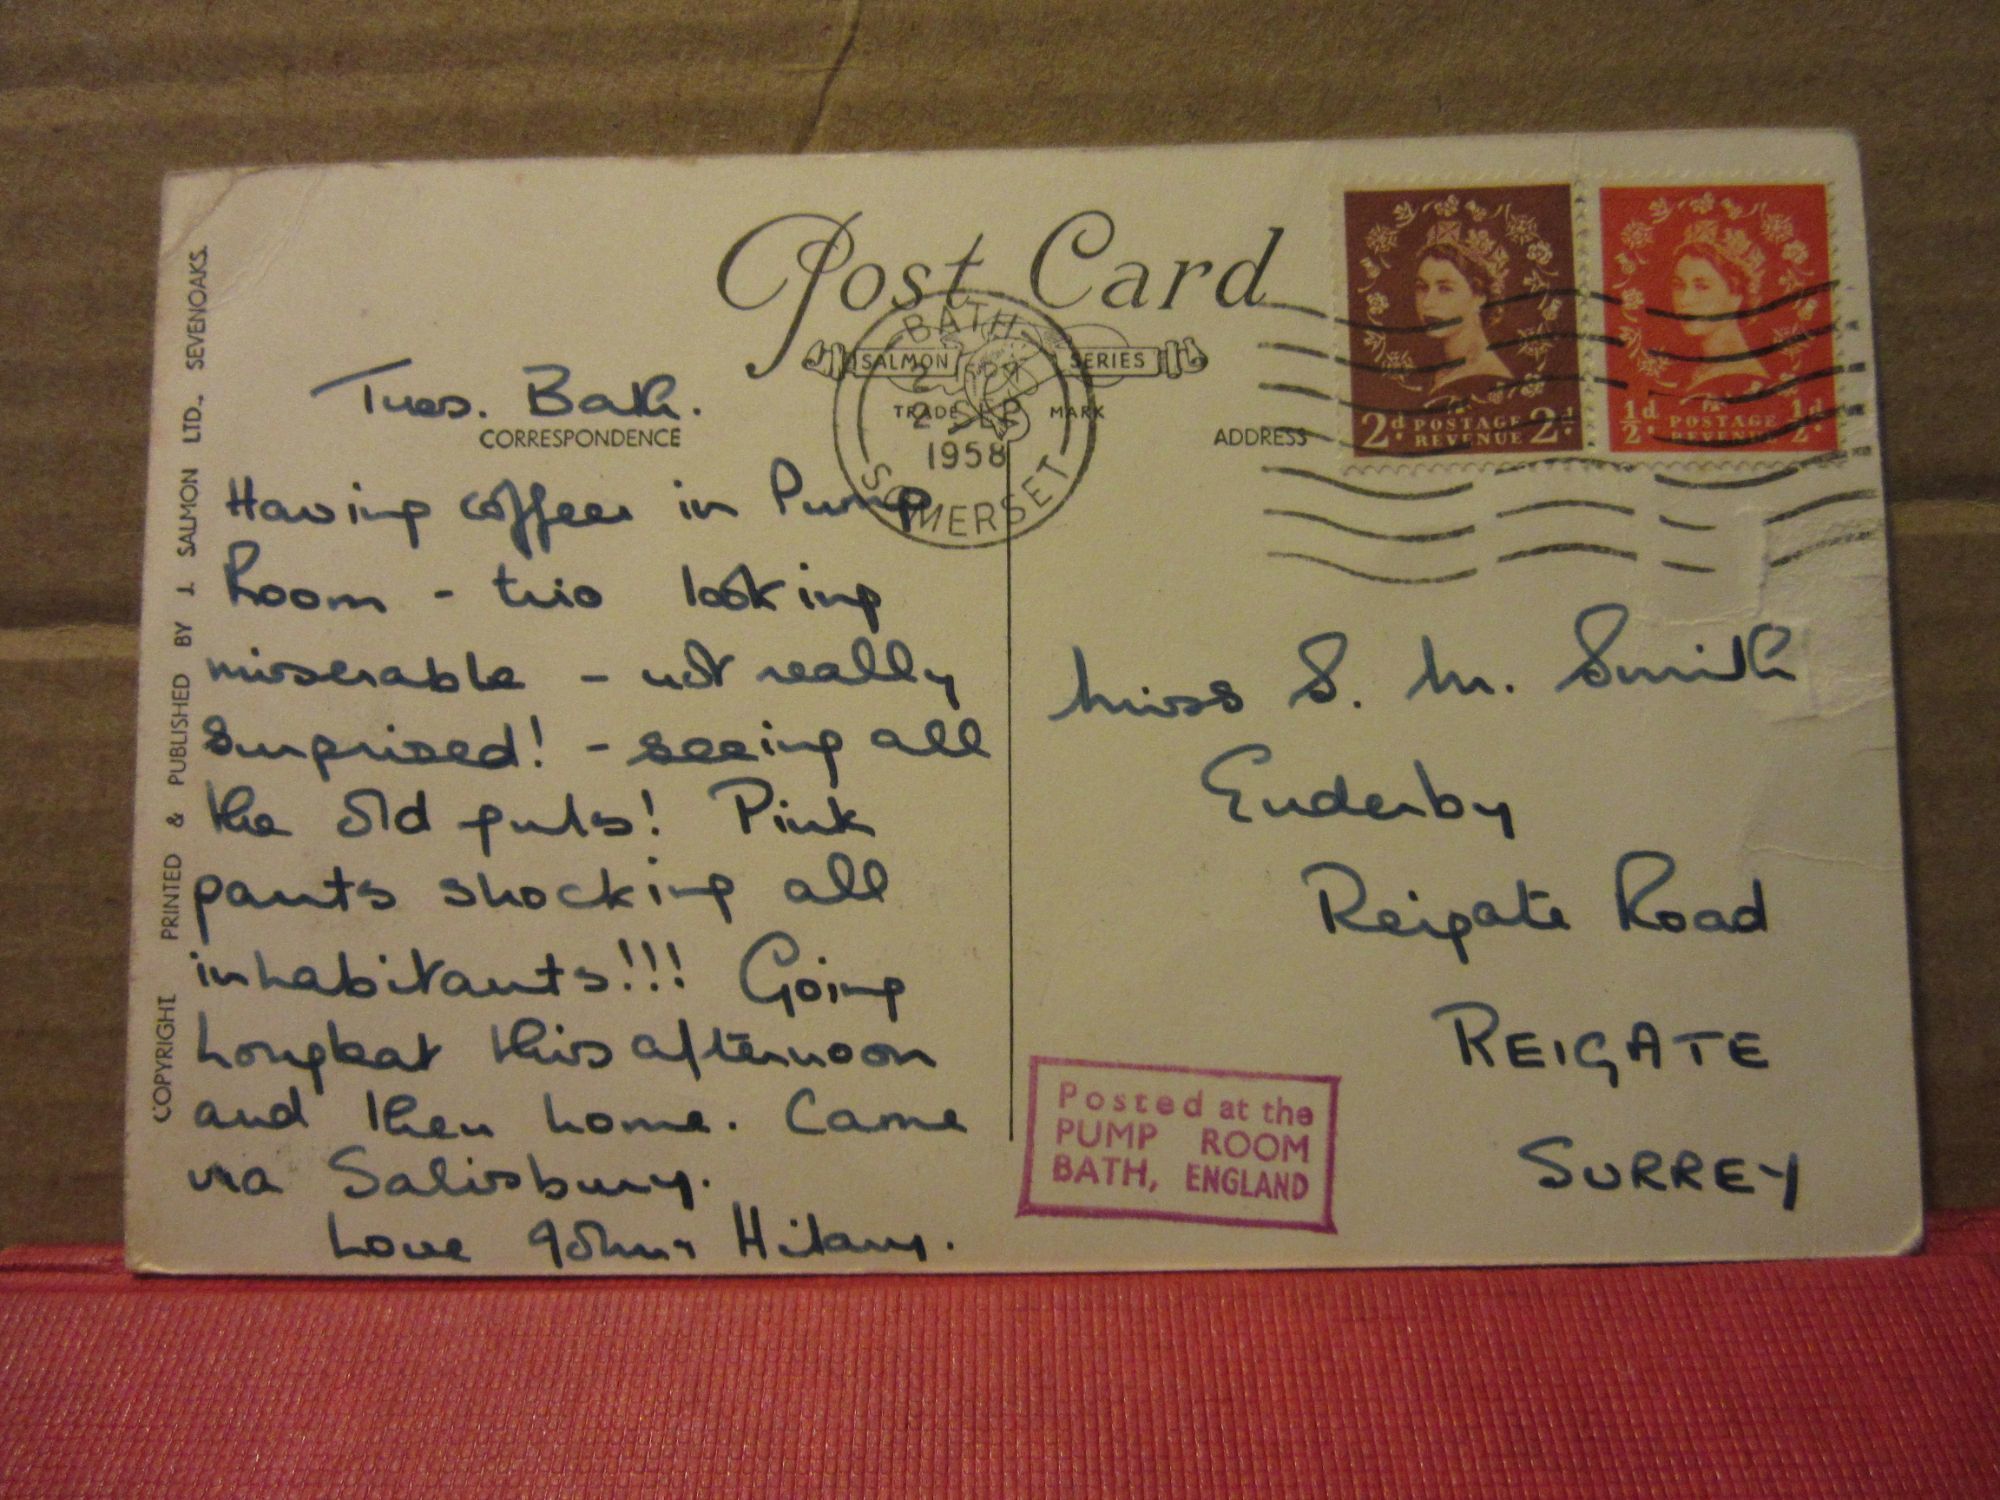 Post Card
SALMON SERIES
TRADE MARK
BATH
2 SEP
1958
SOMERSET
2d POSTAGE 2d
REVENUE
½d POSTAGE ½d
REVENUE
COPYRIGHT PRINTED & PUBLISHED BY J. SALMON LTD., SEVENOAKS.
Tues. Bath.
CORRESPONDENCE
Having coffee in Pump
Room - trio looking
miserable - not really
surprised! - seeing all
the old guts! Pink
pants shocking all
inhabitants!!! Going
Longleat this afternoon
and then home. Came
via Salisbury.
Love John & Hilary.
ADDRESS
Miss S. M. Smith
Enderby
Reigate Road
REIGATE
SURREY
Posted at the
PUMP ROOM
BATH, ENGLAND